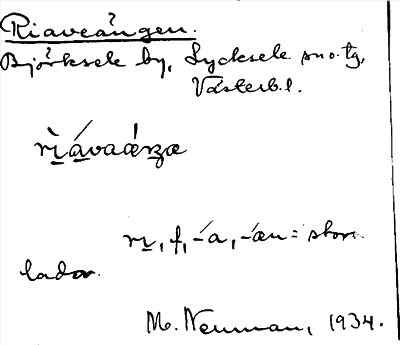 Riaveängen.
Björksele by, Lycksele sn o. tg,
Västerb. l.
rìávaǽŋæ
ri, f, -a, -æn = stor
lada.
M. Neuman, 1934.